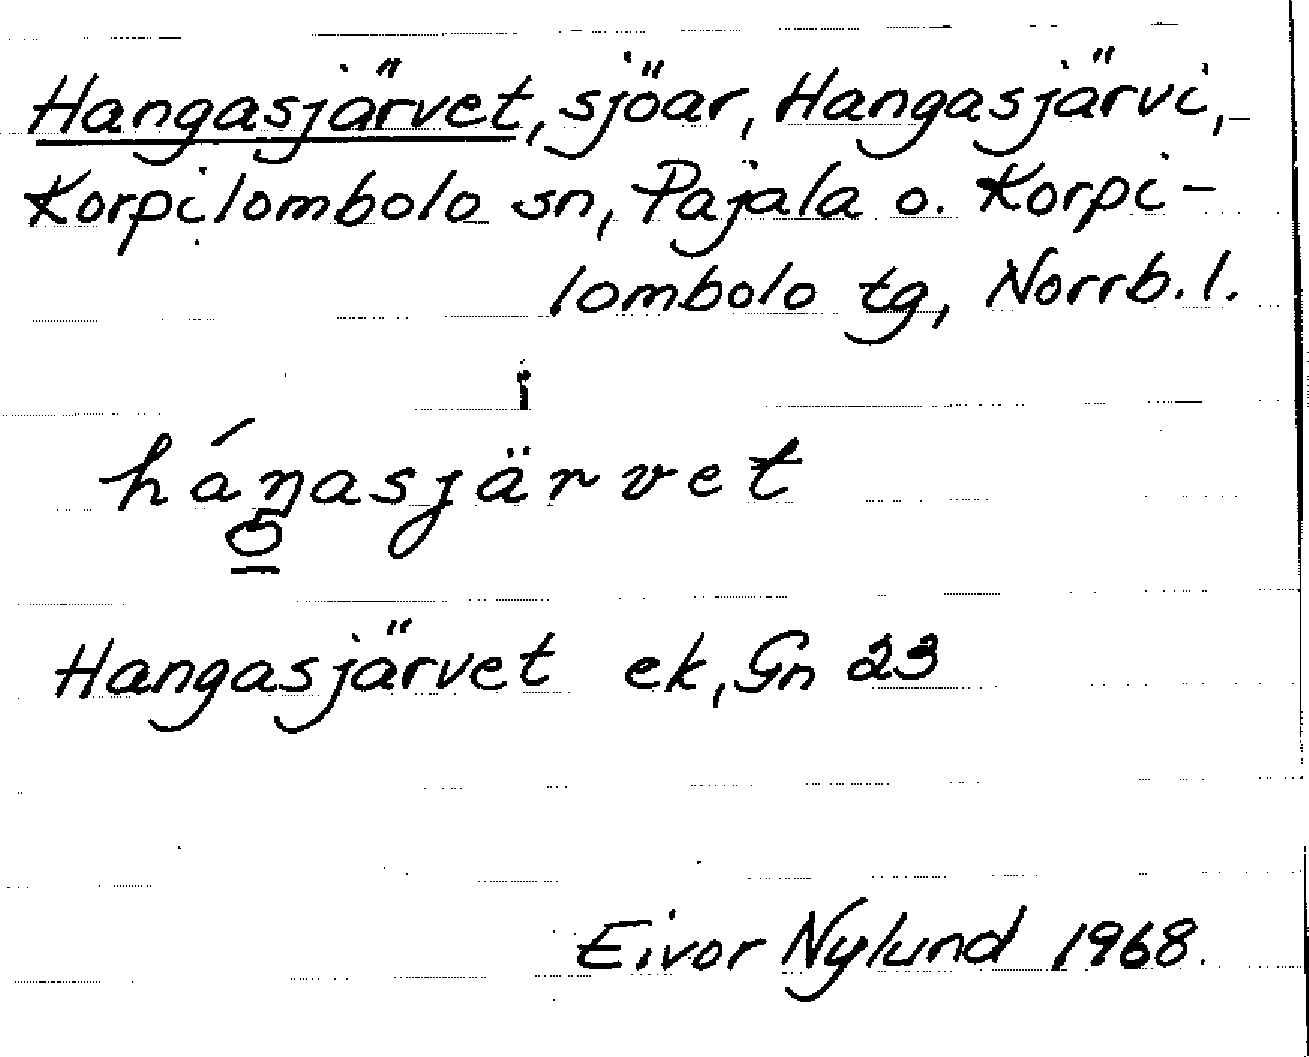 Hangasjärvet, sjöar, Hangasjärvi,
Korpilombolo sn, Pajala o. Korpi-
lombolo tg, Norrb. l.
háŋasjärvet
Hangasjärvet ek, Gn 23
Eivor Nylund 1968.